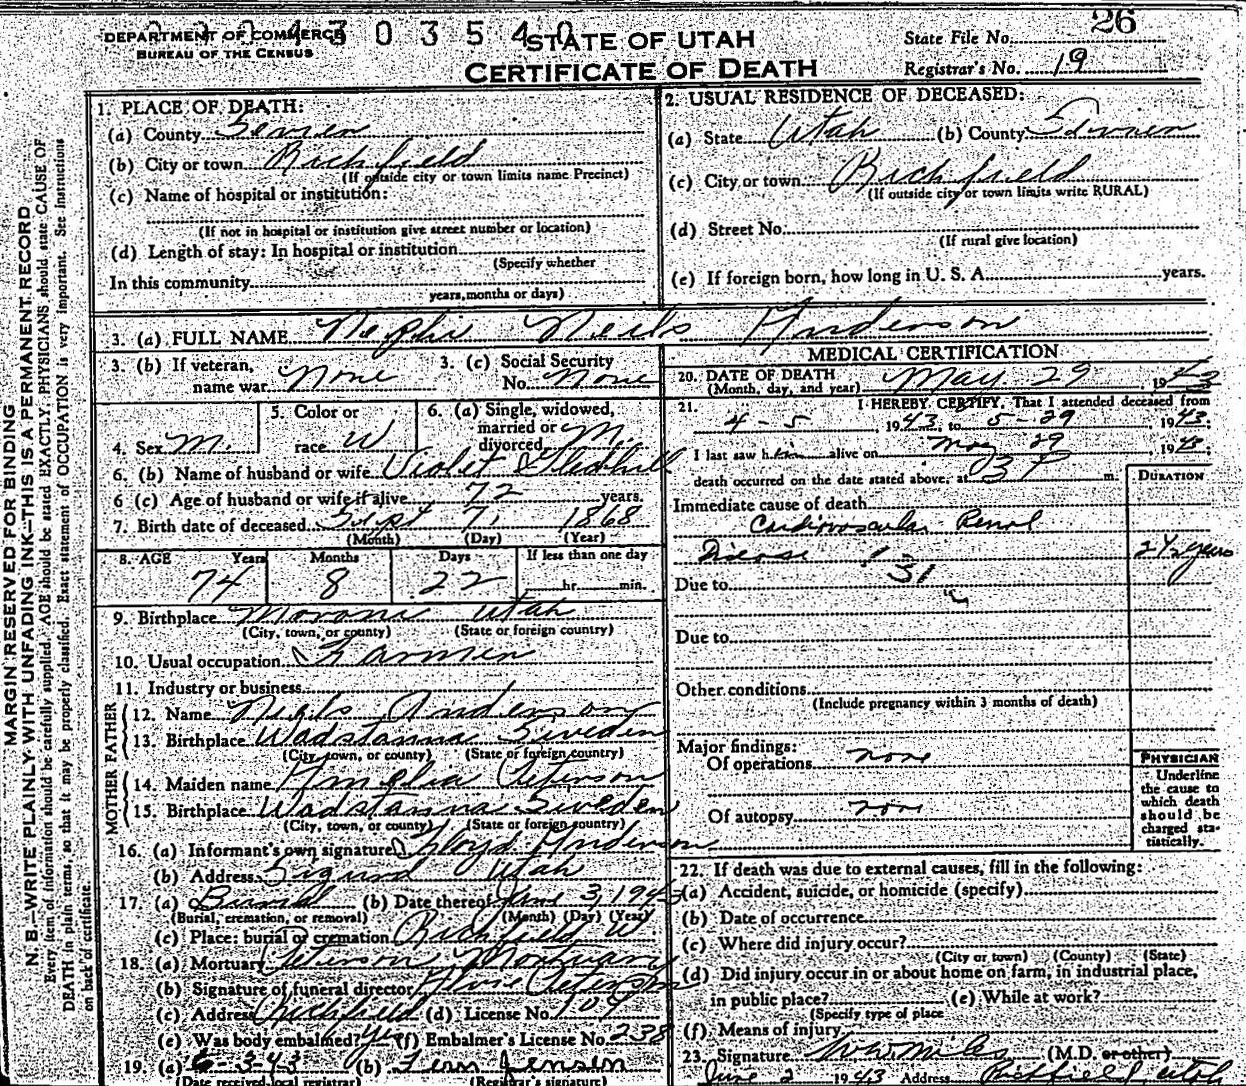 DEPARTMENT OF COMMERCE
BUREAU OF THE CENSUS
STATE OF UTAH
CERTIFICATE OF DEATH
State File No. 26
Registrar's No. 19
MARGIN RESERVED FOR BINDING
N. B.—WRITE PLAINLY WITH UNFADING INK—THIS IS A PERMANENT RECORD
Every item of information should be carefully supplied. AGE should be stated EXACTLY. PHYSICIANS should state CAUSE OF
DEATH in plain terms, so that it may be properly classified. Exact statement of OCCUPATION is very important. See instructions
on back of certificate.
1. PLACE OF DEATH:
(a) County Sevier
(b) City or town Richfield
(If outside city or town limits name Precinct)
(c) Name of hospital or institution:
(If not in hospital or institution give street number or location)
(d) Length of stay: In hospital or institution
(Specify whether
In this community
years, months or days)
2. USUAL RESIDENCE OF DECEASED:
(a) State Utah (b) County Sevier
(c) City or town Richfield
(If outside city or town limits write RURAL)
(d) Street No.
(If rural give location)
(e) If foreign born, how long in U. S. A. years.
3. (a) FULL NAME Nephi Neils Anderson
3. (b) If veteran,
name war None
3. (c) Social Security
No. None
4. Sex M.
5. Color or
race W
6. (a) Single, widowed,
married or
divorced M.
6. (b) Name of husband or wife Violet Gledhill
6 (c) Age of husband or wife if alive 72 years.
7. Birth date of deceased Sept 7, 1868
(Month) (Day) (Year)
8. AGE Years Months Days If less than one day
74 8 22 hr. min.
9. Birthplace Moroni Utah
(City, town, or county) (State or foreign country)
10. Usual occupation Farmer
11. Industry or business
FATHER
12. Name Neils Anderson
13. Birthplace Wadstanna Sweden
(City, town, or county) (State or foreign country)
MOTHER
14. Maiden name Amelia Peterson
15. Birthplace Wadstanna Sweden
(City, town, or county) (State or foreign country)
16. (a) Informant's own signature Floyd Anderson
(b) Address Sigurd Utah
17. (a) Burial (b) Date thereof June 3, 1943
(Burial, cremation, or removal) (Month) (Day) (Year)
(c) Place: burial or cremation Richfield U
18. (a) Mortuary Peterson Mortuary
(b) Signature of funeral director Alvie Peterson
(c) Address Richfield (d) License No. 109
(e) Was body embalmed? yes (f) Embalmer's License No. 238
19. (a) 6-3-43 (b) Fern Jensen
(Date received local registrar) (Registrar's signature)
MEDICAL CERTIFICATION
20. DATE OF DEATH
(Month, day, and year) May 29, 1943
21. I HEREBY CERTIFY, That I attended deceased from
4-5, 1943, to 5-29 1943;
I last saw him alive on May 29, 1943;
death occurred on the date stated above, at m.
DURATION
Immediate cause of death
Cardiovascular Renal
Disease 2½ years
131
Due to
Due to
Other conditions
(Include pregnancy within 3 months of death)
Major findings:
Of operations none
Of autopsy none
PHYSICIAN
Underline
the cause to
which death
should be
charged sta-
tistically.
22. If death was due to external causes, fill in the following:
(a) Accident, suicide, or homicide (specify)
(b) Date of occurrence
(c) Where did injury occur?
(City or town) (County) (State)
(d) Did injury occur in or about home on farm, in industrial place,
in public place? (e) While at work?
(Specify type of place
(f) Means of injury
23. Signature (M.D. or other)
June 2 1943 Address Richfield Utah